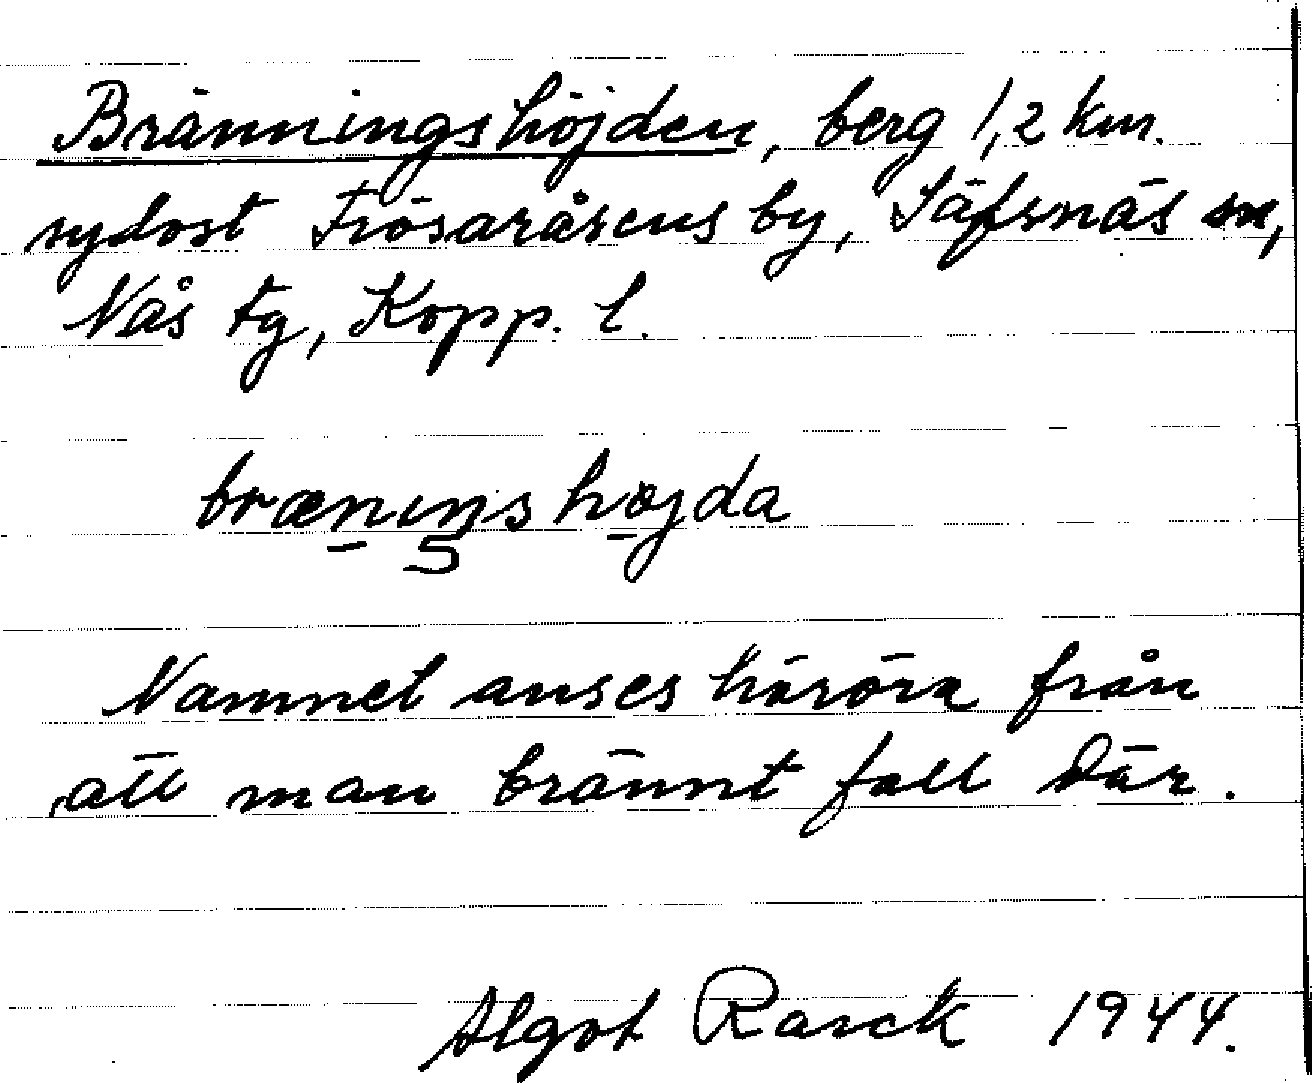 Bränningshöjden, berg 1,2 km.
sydost Frösaråsens by, Säfsnäs sn,
Nås tg, Kopp. l.
brænıŋshøjda
Namnet anses härröra från
att man bränt fall där.
Algot Rasck 1944.